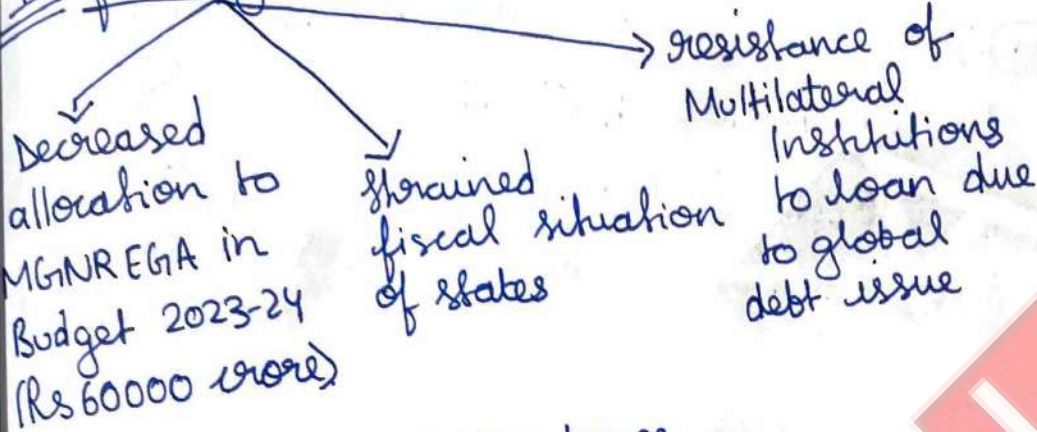 Decreased
allocation to
MGNREGA in
Budget 2023-24
(Rs 60000 crore)
Strained
fiscal situation
of states
resistance of
Multilateral
Institutions
to loan due
to global
debt issue